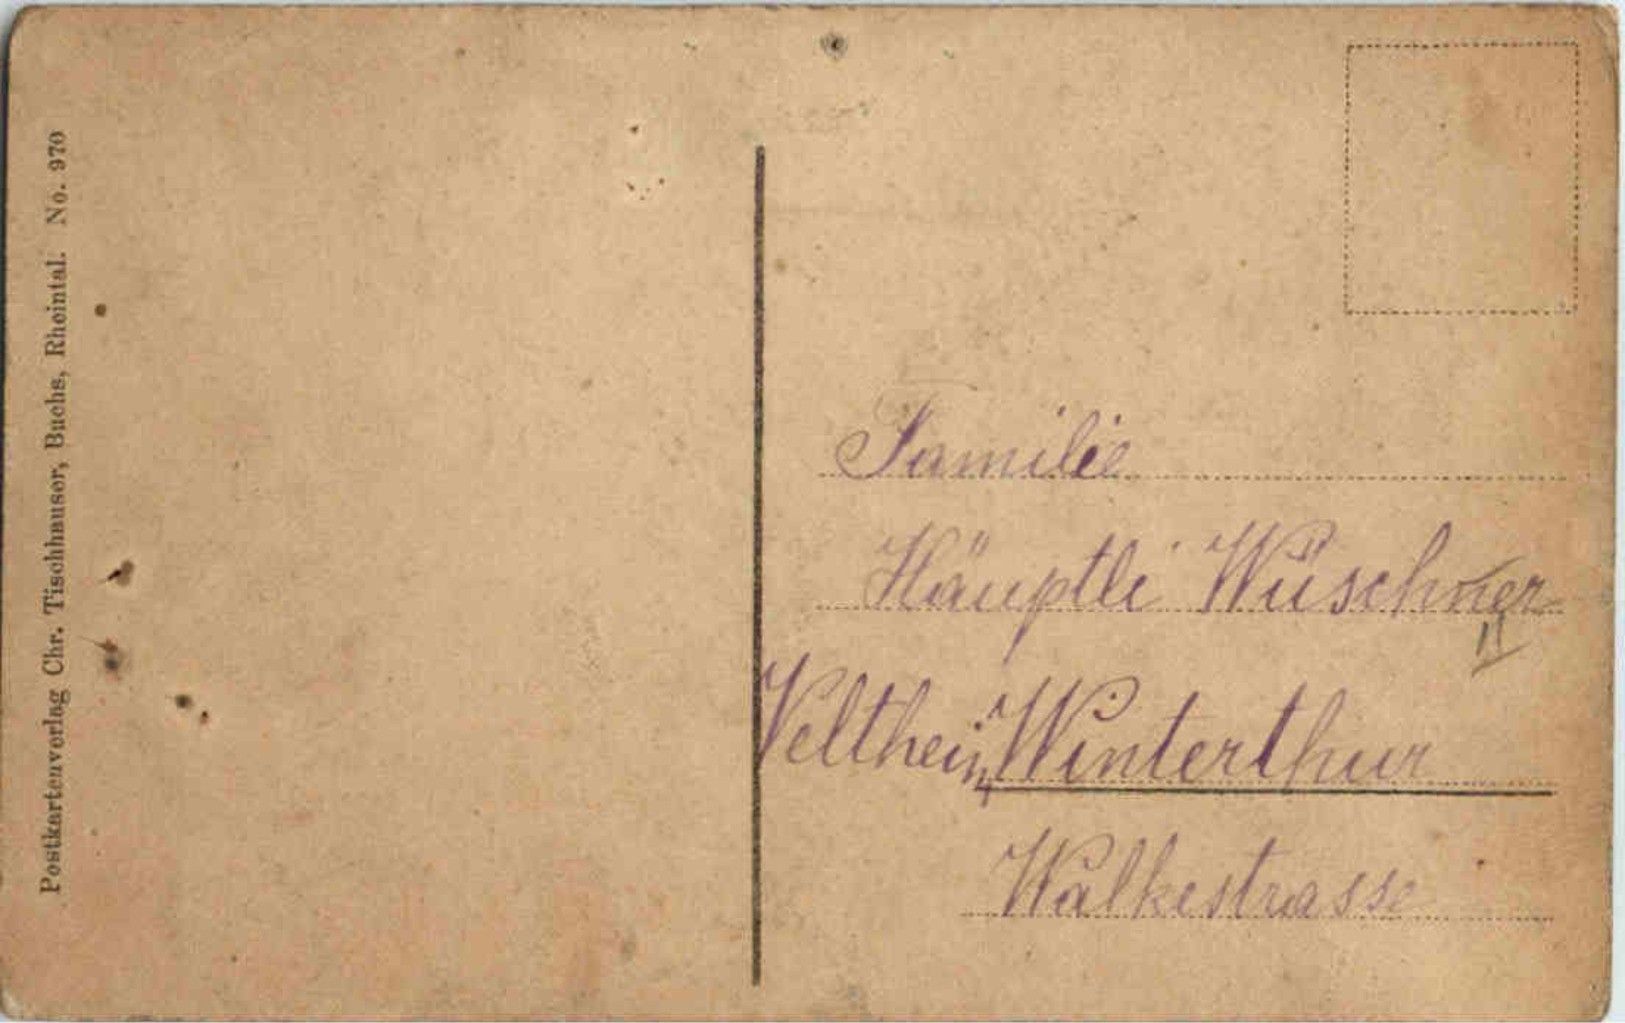 Postkartenverlag Chr. Tischhauser, Buchs, Rheintal. No. 970
Familie
Häuptli Wüschner
Veltheim Winterthur
Walkestrasse